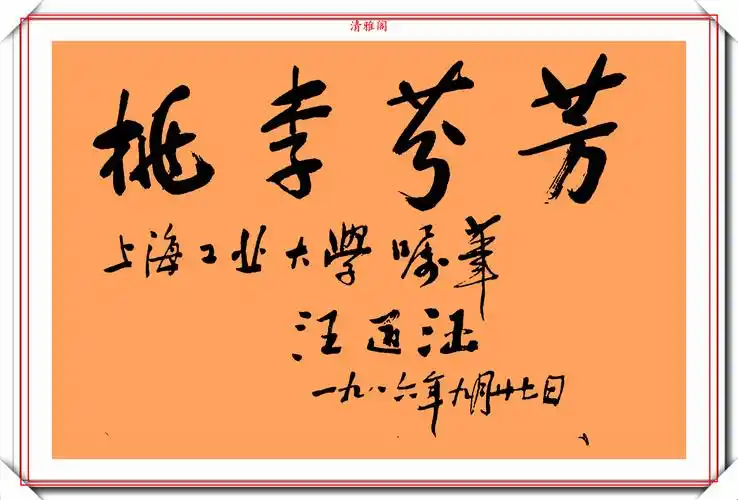 清雅阁
桃李芬芳
上海工业大學嘱筆
汪道涵
一九八六年九月廿七日